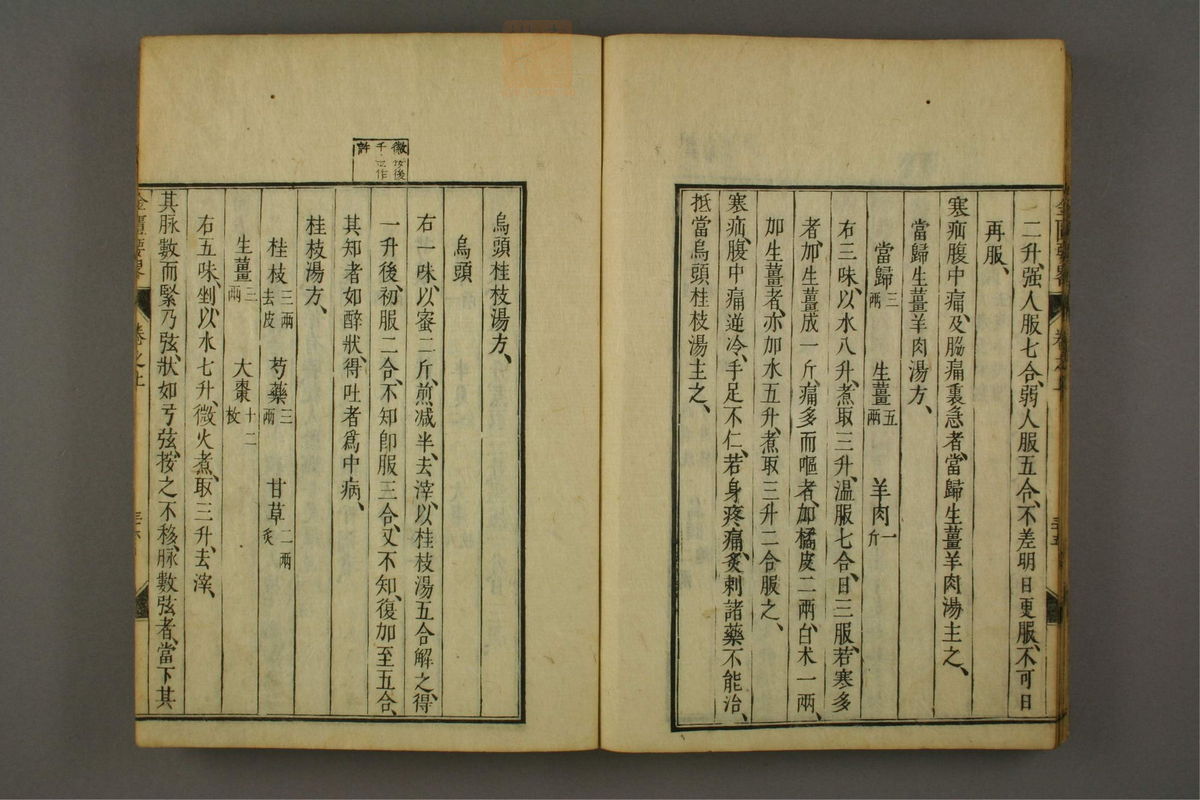 二升、強人服七合、弱人服五合、不差明日更服、不可日
再服、
寒疝腹中痛、及脇痛裏急者、當歸生薑羊肉湯主之、
當歸生薑羊肉湯方、
當歸三兩 生薑五兩 羊肉一斤
右三味、以水八升、煮取三升、温服七合、日三服、若寒多
者、加生薑成一斤、痛多而嘔者、加橘皮二兩、白朮一兩、
加生薑者、亦加水五升、煮取三升二合服之、
寒疝、腹中痛逆冷、手足不仁、若身疼痛、炙刺諸藥不能治、
抵當烏頭桂枝湯主之、
金匱要畧 卷之上 三十五
烏頭桂枝湯方、
烏頭
右一味、以蜜二斤、煎减半、去滓、以桂枝湯五合解之、得
一升後、初服二合、不知卽服三合、又不知、復加至五合、
其知者如醉狀、得吐者爲中病、
桂枝湯方、
桂枝三兩去皮 芍藥三兩 甘草二兩炙
生薑三兩 大棗十二枚
右五味、剉、以水七升、微火煮、取三升、去滓、
其脉數而緊乃弦、狀如弓弦、按之不移、脉數弦者、當下其
金匱要畧 卷之上 三十六